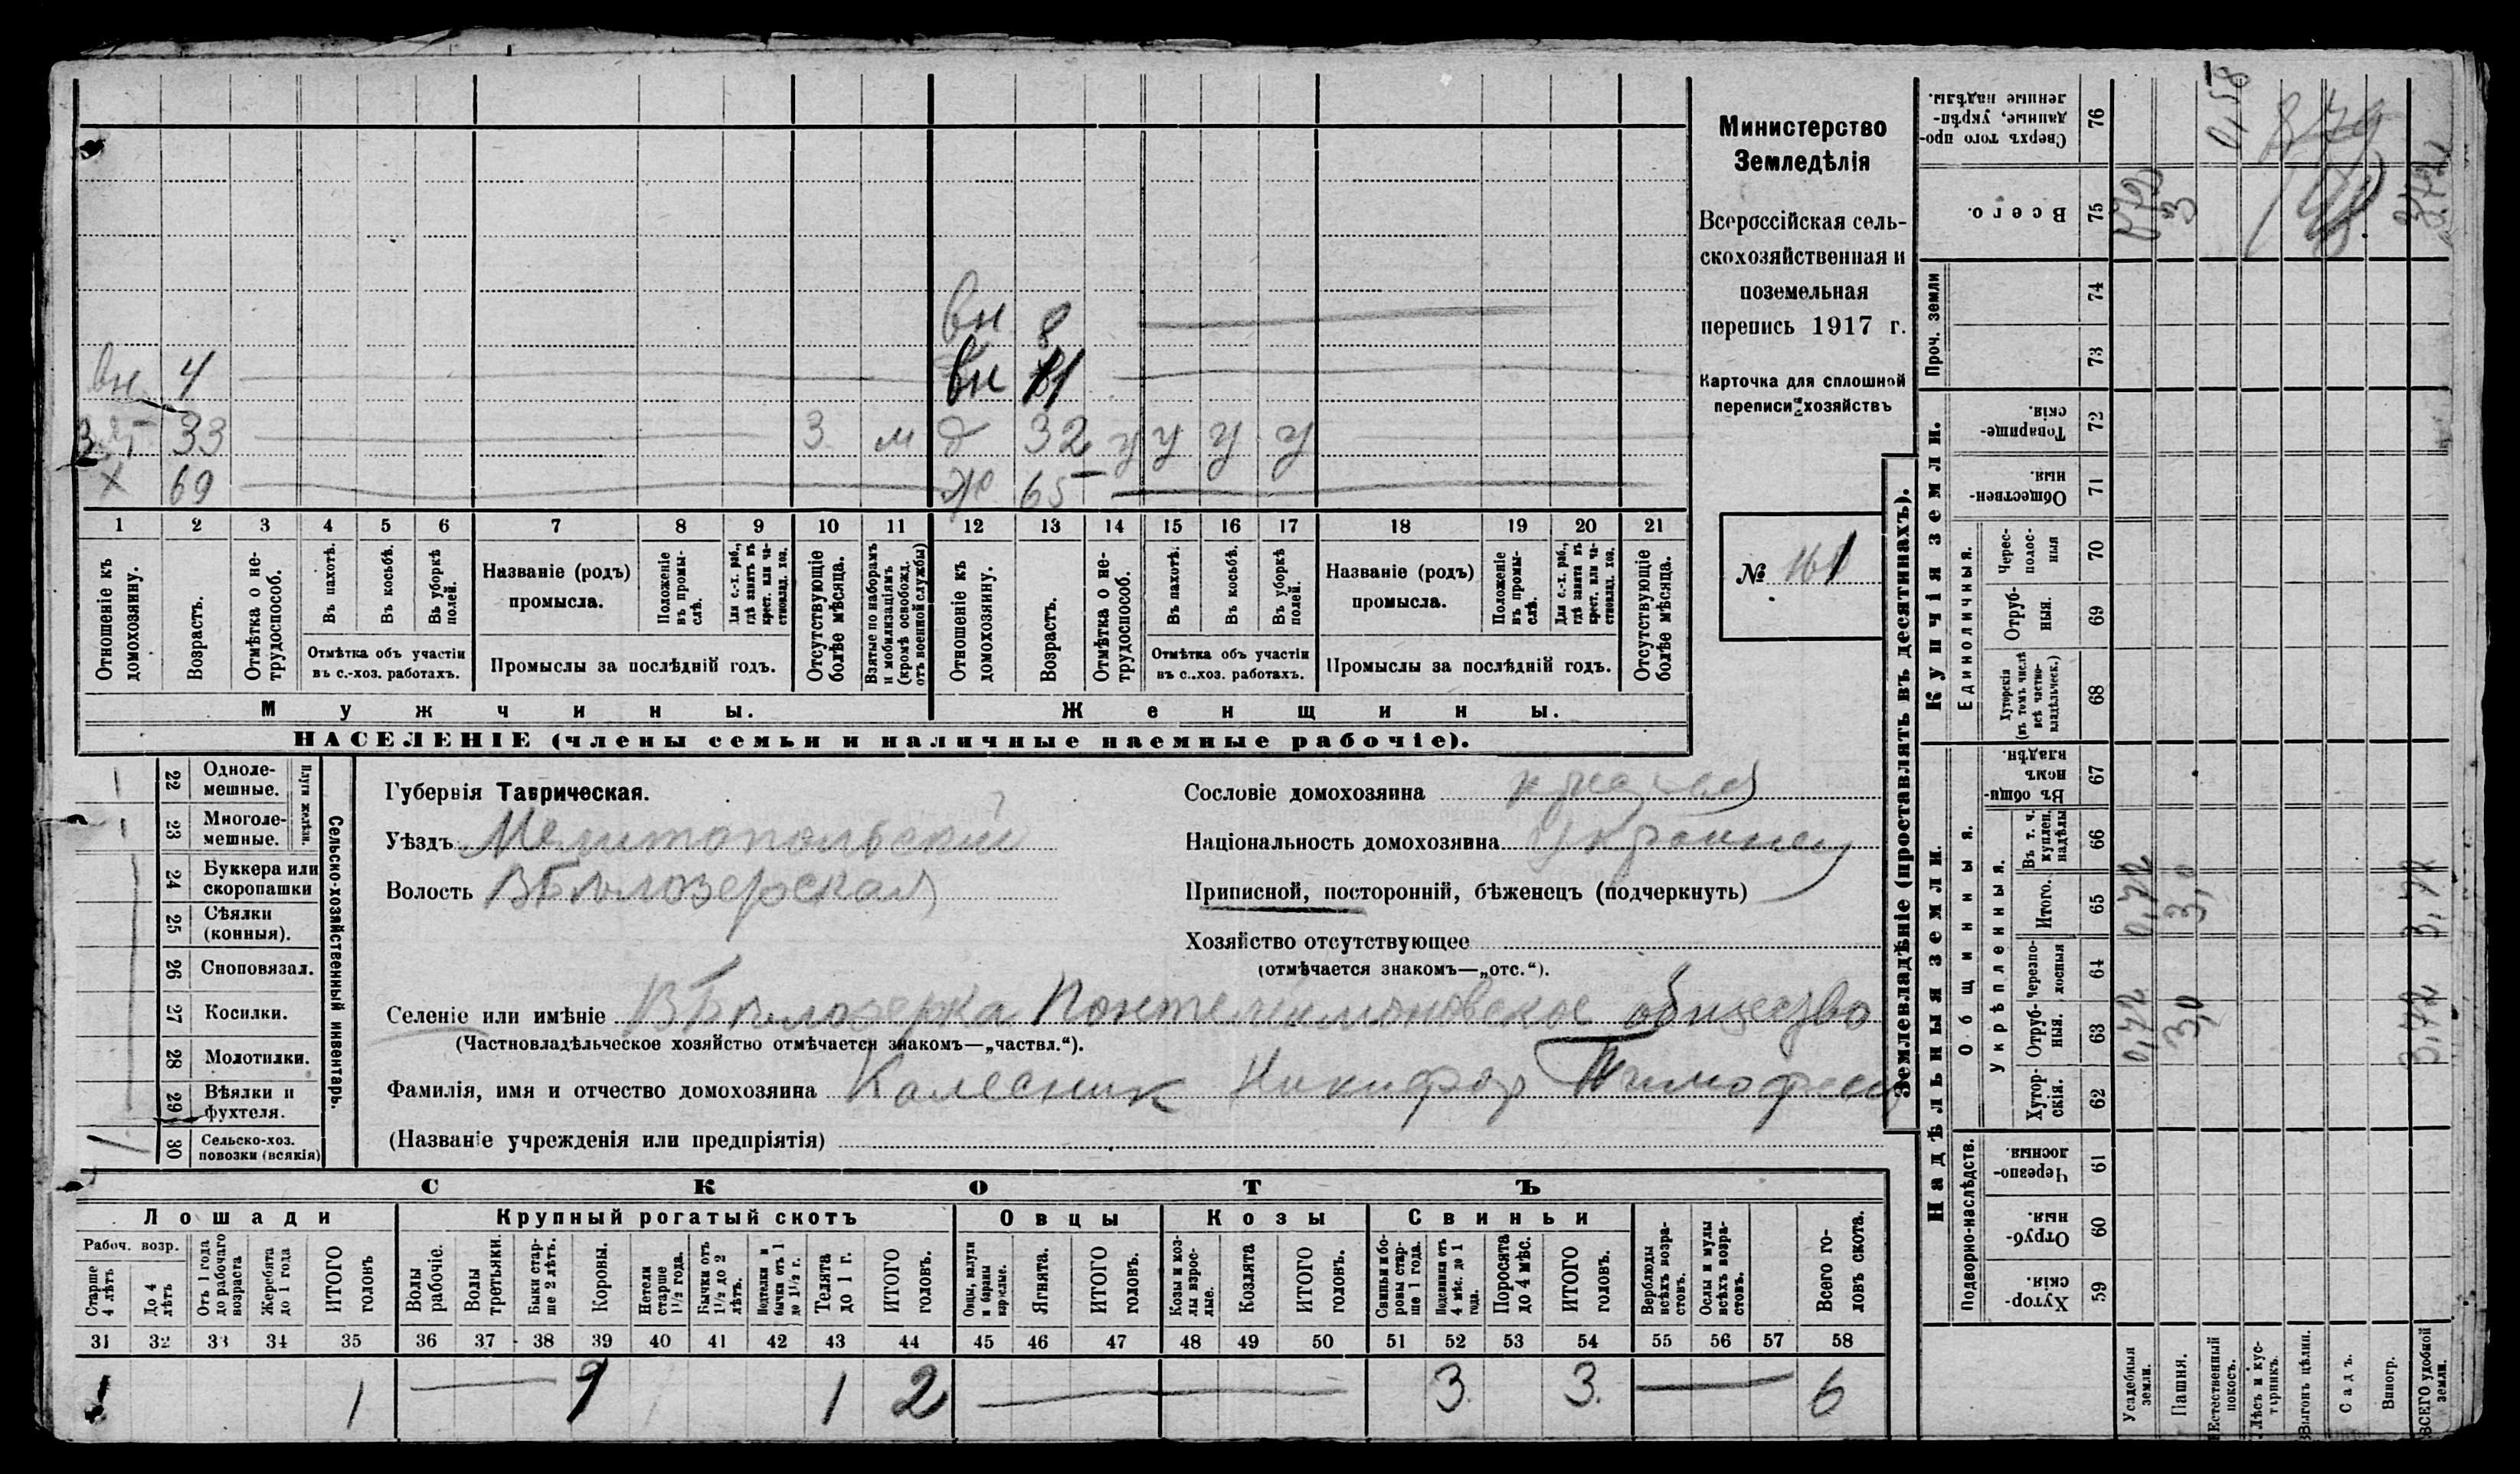 вн 8
вн 4 вн 11
33 3 м д 32 у у у у
х 69 ж 65
1 2 3 4 5 6 7 8 9 10 11 12 13 14 15 16 17 18 19 20 21
Отношеніе къ домохозяину.
Возрастъ.
Отмѣтка о нетрудоспособ.
Въ пахотѣ.
Въ косьбѣ.
Въ уборкѣ полей.
Отмѣтка объ участіи
въ с.-хоз. работахъ.
Названіе (родъ)
промысла.
Положеніе въ промыслѣ.
Для с.-х. раб., гдѣ занятъ въ крест. или частновлад. хоз.
Промыслы за послѣдній годъ.
Отсутствующіе болѣе мѣсяца.
Взятые по наборамъ и мобилизаціямъ (кромѣ освобожд. отъ военной службы)
Отношеніе къ домохозяину.
Возрастъ.
Отмѣтка о нетрудоспособ.
Въ пахотѣ.
Въ косьбѣ.
Въ уборкѣ полей.
Отмѣтка объ участіи
въ с.-хоз. работахъ.
Названіе (родъ)
промысла.
Положеніе въ промыслѣ.
Для с.-х. раб., гдѣ занята въ крест. или частновлад. хоз.
Промыслы за послѣдній годъ.
Отсутствующіе болѣе мѣсяца.
Мужчины. Женщины.
НАСЕЛЕНІЕ (члены семьи и наличные наемные рабочіе).
Министерство
Земледѣлія
Всероссійская сель-
скохозяйственная и
поземельная
перепись 1917 г.
Карточка для сплошной
переписи хозяйствъ
№ 161
22 Одноле-
мешные.
23 Многоле-
мешные.
Плуги желѣзн.
24 Буккера или
скоропашки
25 Сѣялки
(конныя).
26 Сноповязал.
27 Косилки.
28 Молотилки.
29 Вѣялки и
фухтеля.
30 Сельско-хоз.
повозки (всякія) 1
Сельско-хозяйственный инвентарь.
Губернія Таврическая.
Уѣздъ Мелитопольский
Волость ВБѣлозерская
Сословіе домохозяина
Національность домохозяина Украинец
Приписной, посторонній, бѣженецъ (подчеркнуть)
Хозяйство отсутствующее
(отмѣчается знакомъ—„отс.“).
Селеніе или имѣніе ВБѣлозерка Понтелиимоновское общество
(Частновладѣльческое хозяйство отмѣчается знакомъ—„частвл.“).
Фамилія, имя и отчество домохозяина Калесник Никифор Тимофеев
(Названіе учрежденія или предпріятія)
СКОТЪ
Лошади Крупный рогатый скотъ Овцы Козы Свиньи
Рабоч. возр.
Старше 4 лѣтъ
До 4 лѣтъ
Отъ 1 года до рабочаго возраста
Жеребята до 1 года
ИТОГО головъ
Волы рабочіе.
Волы третьяки.
Быки старше 2 лѣтъ.
Коровы.
Нетели старше 1½ года.
Бычки отъ 1½ до 2 лѣтъ.
Подтелки и бычки отъ 1 до 1½ г.
Телята до 1 г.
ИТОГО головъ.
Овцы, валухи и бараны взрослые.
Ягнята.
ИТОГО головъ.
Козы и козлы взрослые.
Козлята
ИТОГО головъ.
Свиньи и боровы старше 1 года.
Подсвинки отъ 4 мѣс. до 1 года.
Поросята до 4 мѣс.
ИТОГО головъ.
Верблюды всѣхъ возрастовъ.
Ослы и мулы всѣхъ возрастовъ.
Всего головъ скота.
31 32 33 34 35 36 37 38 39 40 41 42 43 44 45 46 47 48 49 50 51 52 53 54 55 56 57 58
1 1 1 1 2 3 3 6
Землевладѣніе (проставлять въ десятинахъ).
Купчія земли.
Надѣльныя земли.
Сверхъ того проданные, укрѣпленные надѣлы. 76
Всего. 75
Проч. земли 74 73
Товарищескія. 72
Общественныя. 71
Единоличныя.
Чересполосныя 70
Отрубныя. 69
Хуторскія (въ томъ числѣ всѣ частновладѣльческ.) 68
Общинныя.
Въ общинномъ владѣн. 67
Укрѣпленныя.
Въ т. ч. куплен. надѣлы 66
Итого. 65
Черезполосныя 64
Отрубныя. 63
Хуторскія. 62
Подворно-наслѣдств.
Черезполосныя. 61
Отрубныя. 60
Хуторскія. 59
Усадебныя земли. 0,72 0,72
Пашня. 3,0 3,0 3
Естественный покосъ. 0,58
Лѣсъ и кустарникъ.
Выгонъ цѣлин.
Садъ.
Виногр.
ВСЕГО удобной земли. 3,72 3,72